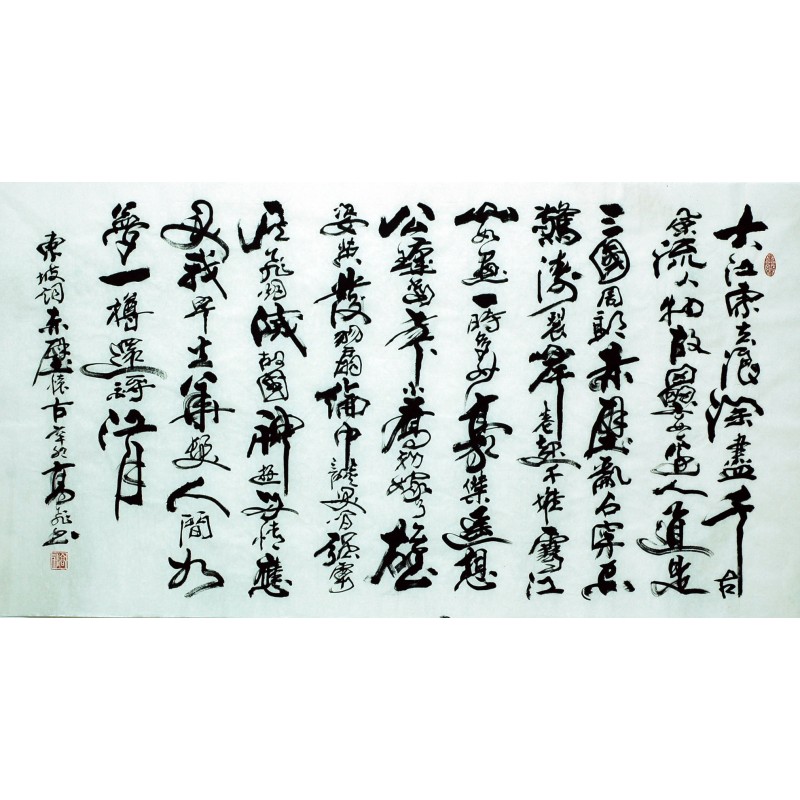 大江東去浪淘盡千古
風流人物故壘西邊人道是
三國周郎赤壁亂石穿空
驚濤裂岸卷起千堆雪江
山如畫一時多少豪傑遙想
公瑾當年小喬初嫁了雄
姿英發羽扇綸巾談笑間強虜
灰飛煙滅故國神遊多情應
笑我早生華髮人間如
夢一樽還酹江月
東坡詞赤壁懷古辛卯高飛書